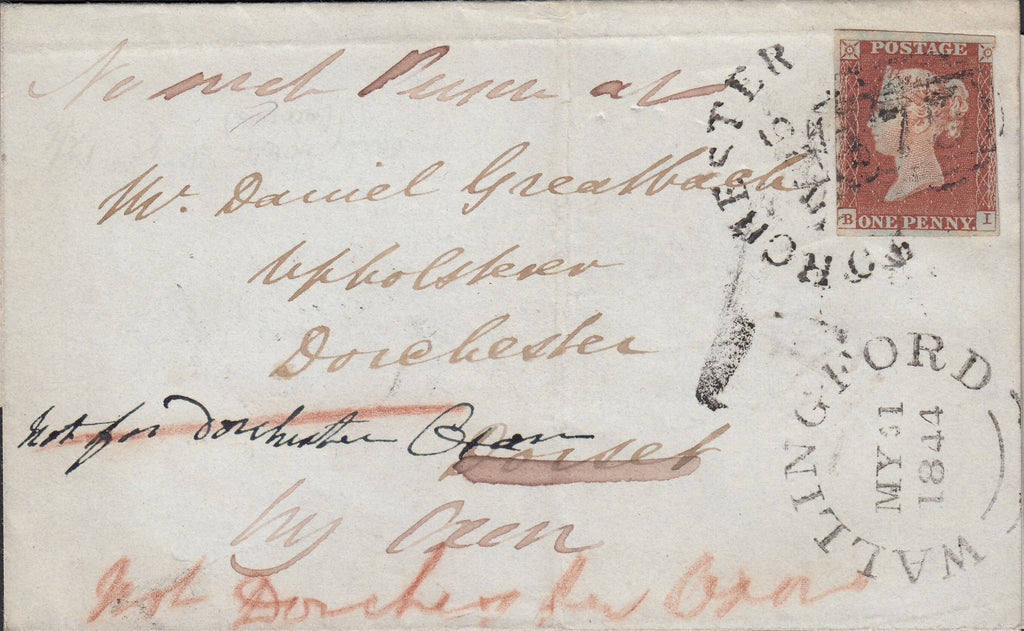 No such Person at
Mr. Daniel Greatbach
Upholsterer
Dorchester
Not for Dorchester Oxon
Dorset
by Oxon
Not Dorchester Oxon
POSTAGE
ONE PENNY
B I
DORCHESTER
WALLINGFORD
MY 31
1844